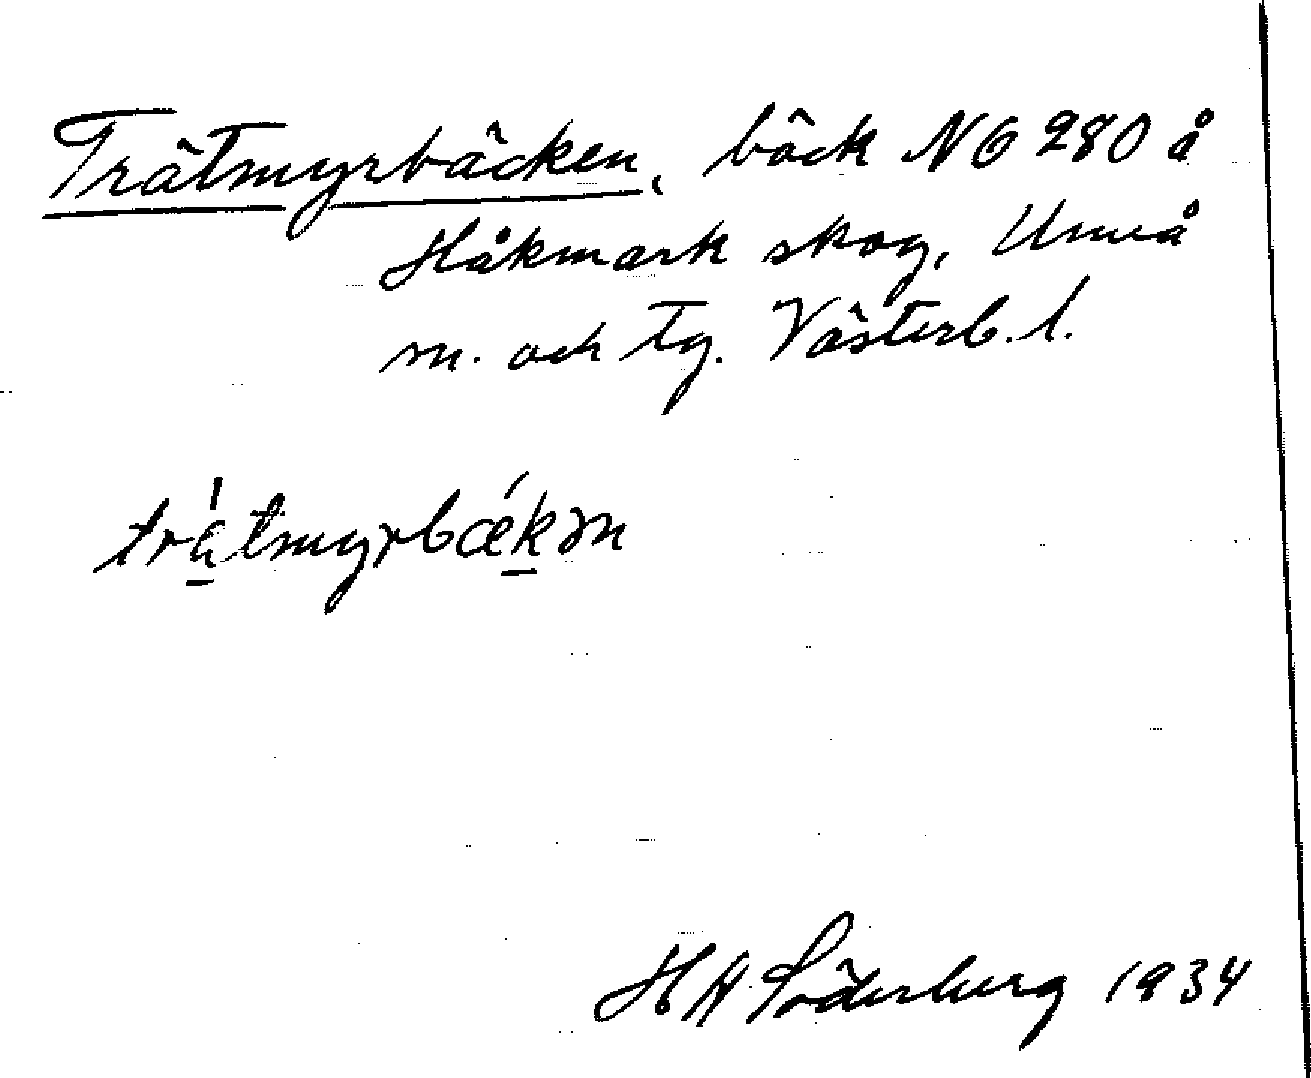 Trätmyrbäcken, bäck NG 280 å
Håkmark skog, Umeå
m. och tg. Västerb. l.
trätmyrbækən
H H Söderberg 1934